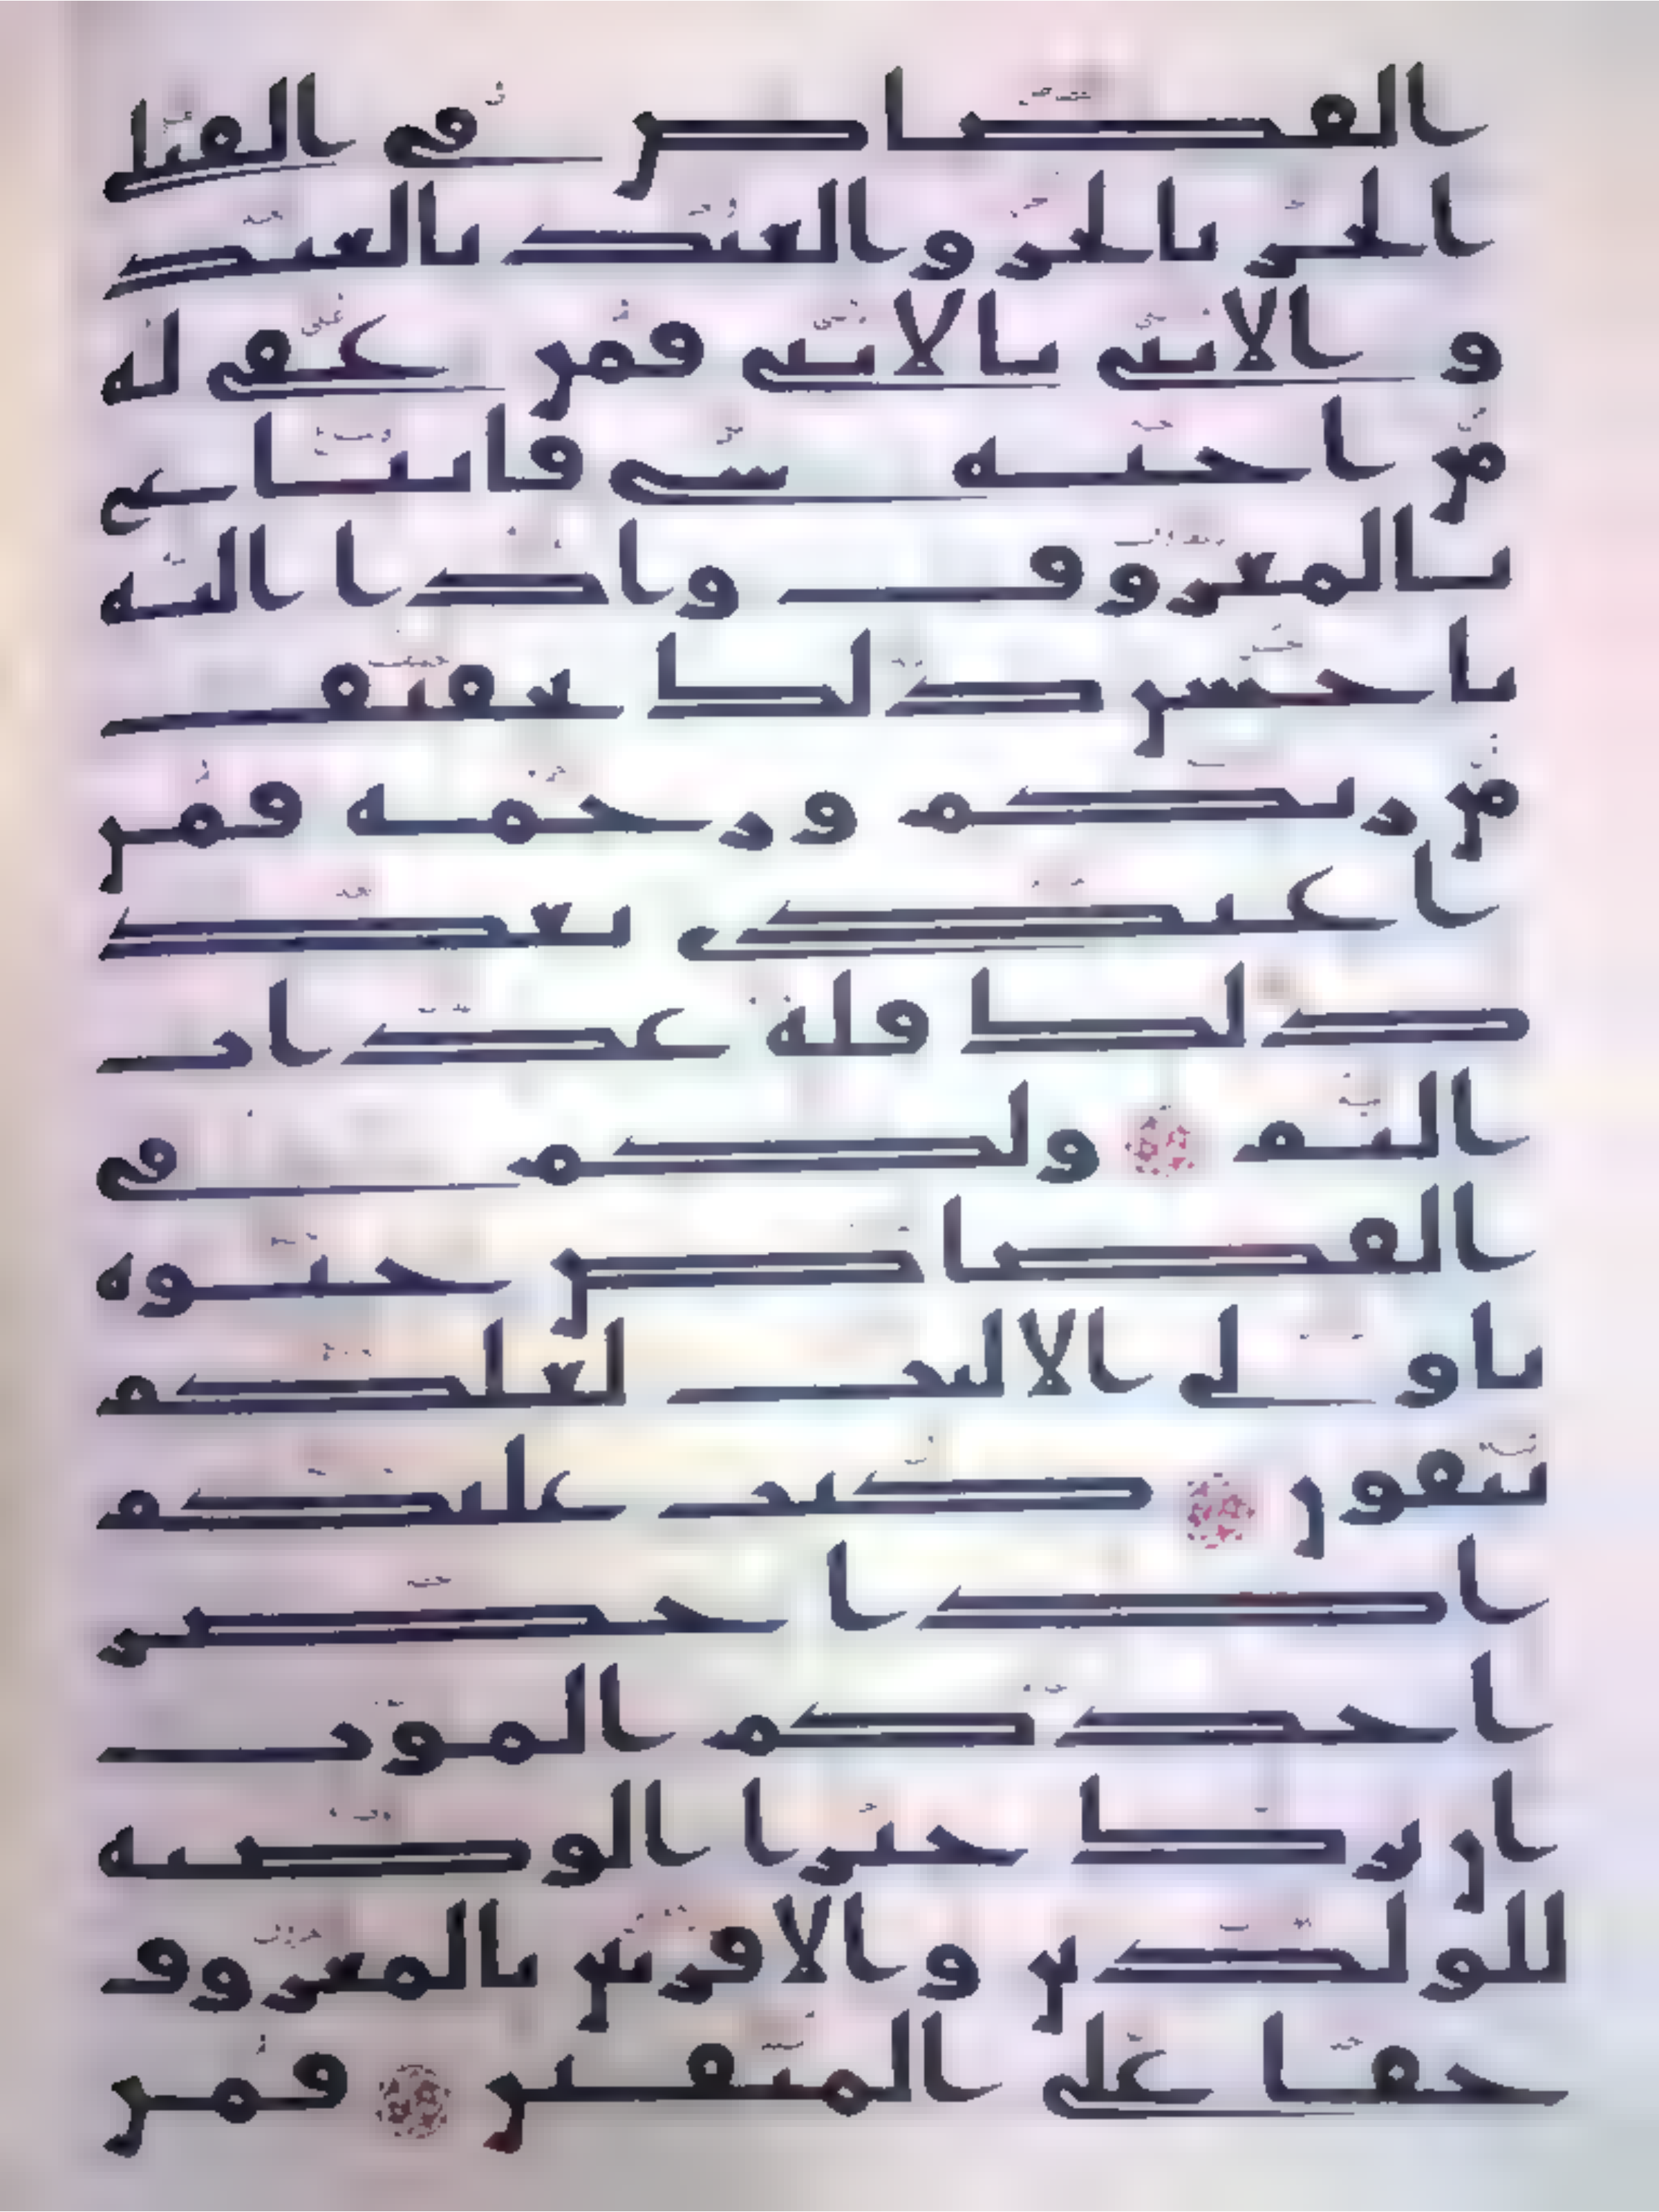 القصاص في القتلى
الحر بالحر والعبد بالعبد
والانثى بالانثى فمن عفى له
من اخيه شي فاتباع
بالمعروف وادا اليه
باحسن ذلك تخفيف
من ربكم ورحمة فمن
اعتدى بعد
ذلك فله عذاب
اليم ولكم في
القصاص حيوة
ياولي الالبب لعلكم
تتقون كتب عليكم
اذا حضر
احدكم الموت
ان ترك خيرا الوصية
للولدين والاقربين بالمعروف
حقا على المتقين فمن